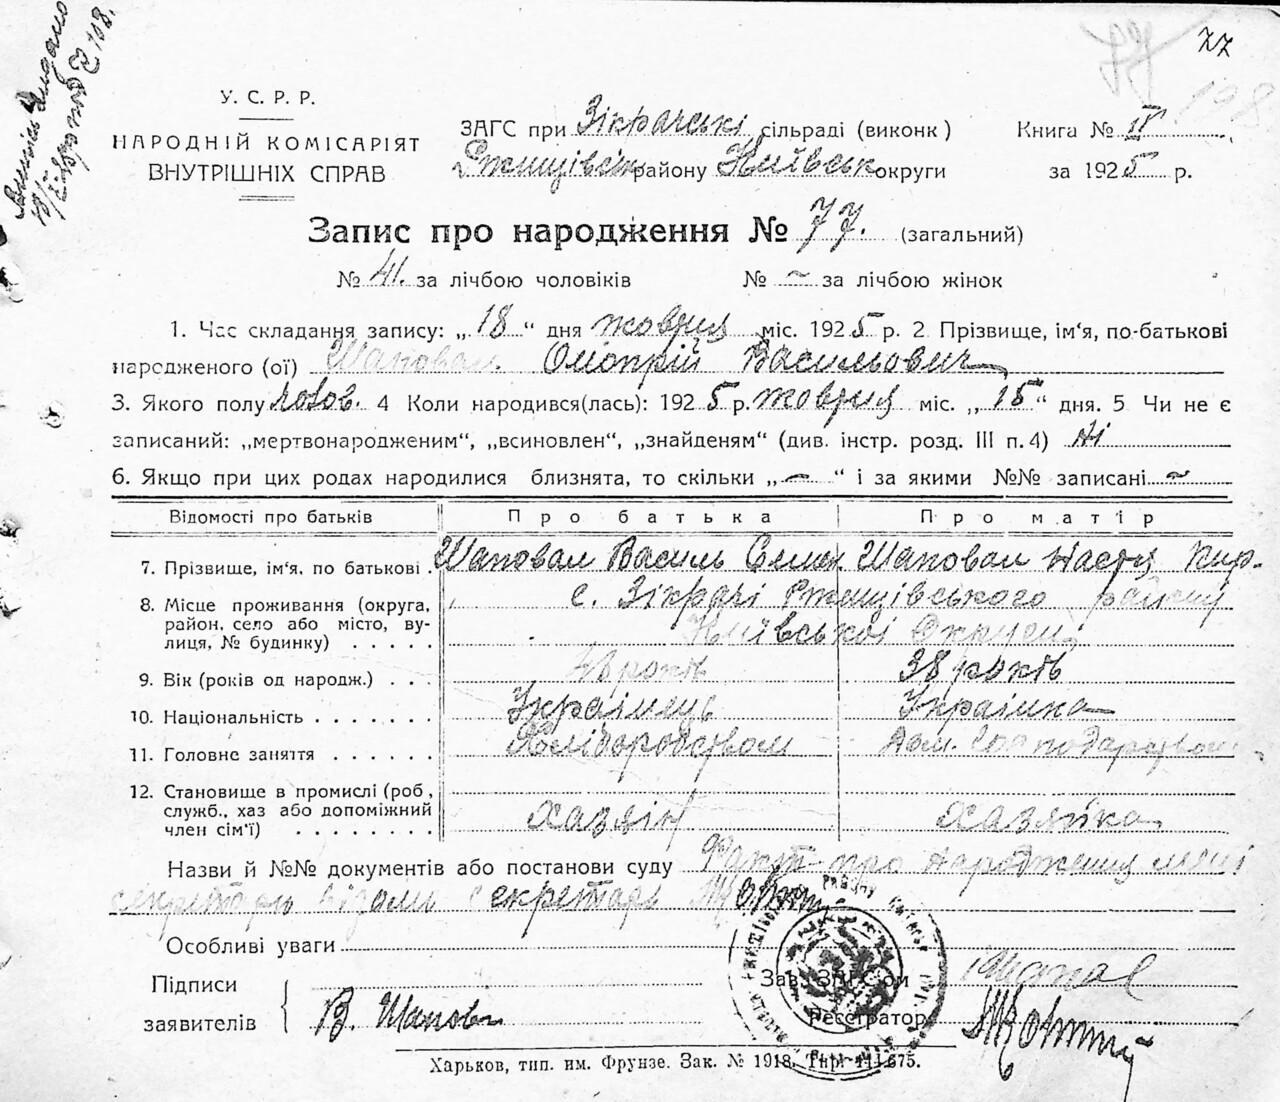 77
198
У. С. Р. Р.
НАРОДНІЙ КОМІСАРІЯТ
ВНУТРІШНІХ СПРАВ
ЗАГС при Зікрачські сільраді (виконк)
Ржищівськ району Київськ округи
Книга № II
за 1925 р.
Запис про народження № 77. (загальний)
№ 41. за лічбою чоловіків № ~ за лічбою жінок
1. Час складання запису: „18“ дня жовтня міс. 1925 р. 2 Прізвище, ім'я, по-батькові
народженого (ої) Шаповал Васильович
3. Якого полу чолов. 4 Коли народився(лась): 1925 р. жовтня міс. „15“ дня. 5 Чи не є
записаний: „мертвонародженим“, „всиновлен“, „знайденям“ (див. інстр. розд. III п. 4) Ні
6. Якщо при цих родах народилися близнята, то скільки „—“ і за якими №№ записані ~
Відомості про батьків Про батька Про матір
7. Прізвище, ім'я, по батькові . Шаповал Василь Семен Шаповал Настя Кир.
8. Місце проживання (округа, с. Зікрачі Ржищівського району
район, село або місто, ву-
лиця, № будинку) . . . . . Київської Округи
9. Вік (років од народж.) . . . років 38 років
10. Національність . . . . . . . Українець Українка
11. Головне заняття . . . . . . Хліборобством Дом. господарством
12. Становище в промислі (роб,
служб., хаз або допоміжний
член сім'ї) . . . . . . . . хазяїн хазяйка
Назви й №№ документів або постанови суду Факт про народження мені
секретарь відомо секретарь
Особливі уваги
Підписи
заявителів В. Шапов
Зав. ЗАГС'ом
Реєстратор
Харьков, тип. им. Фрунзе. Зак. № 1918. Тир.